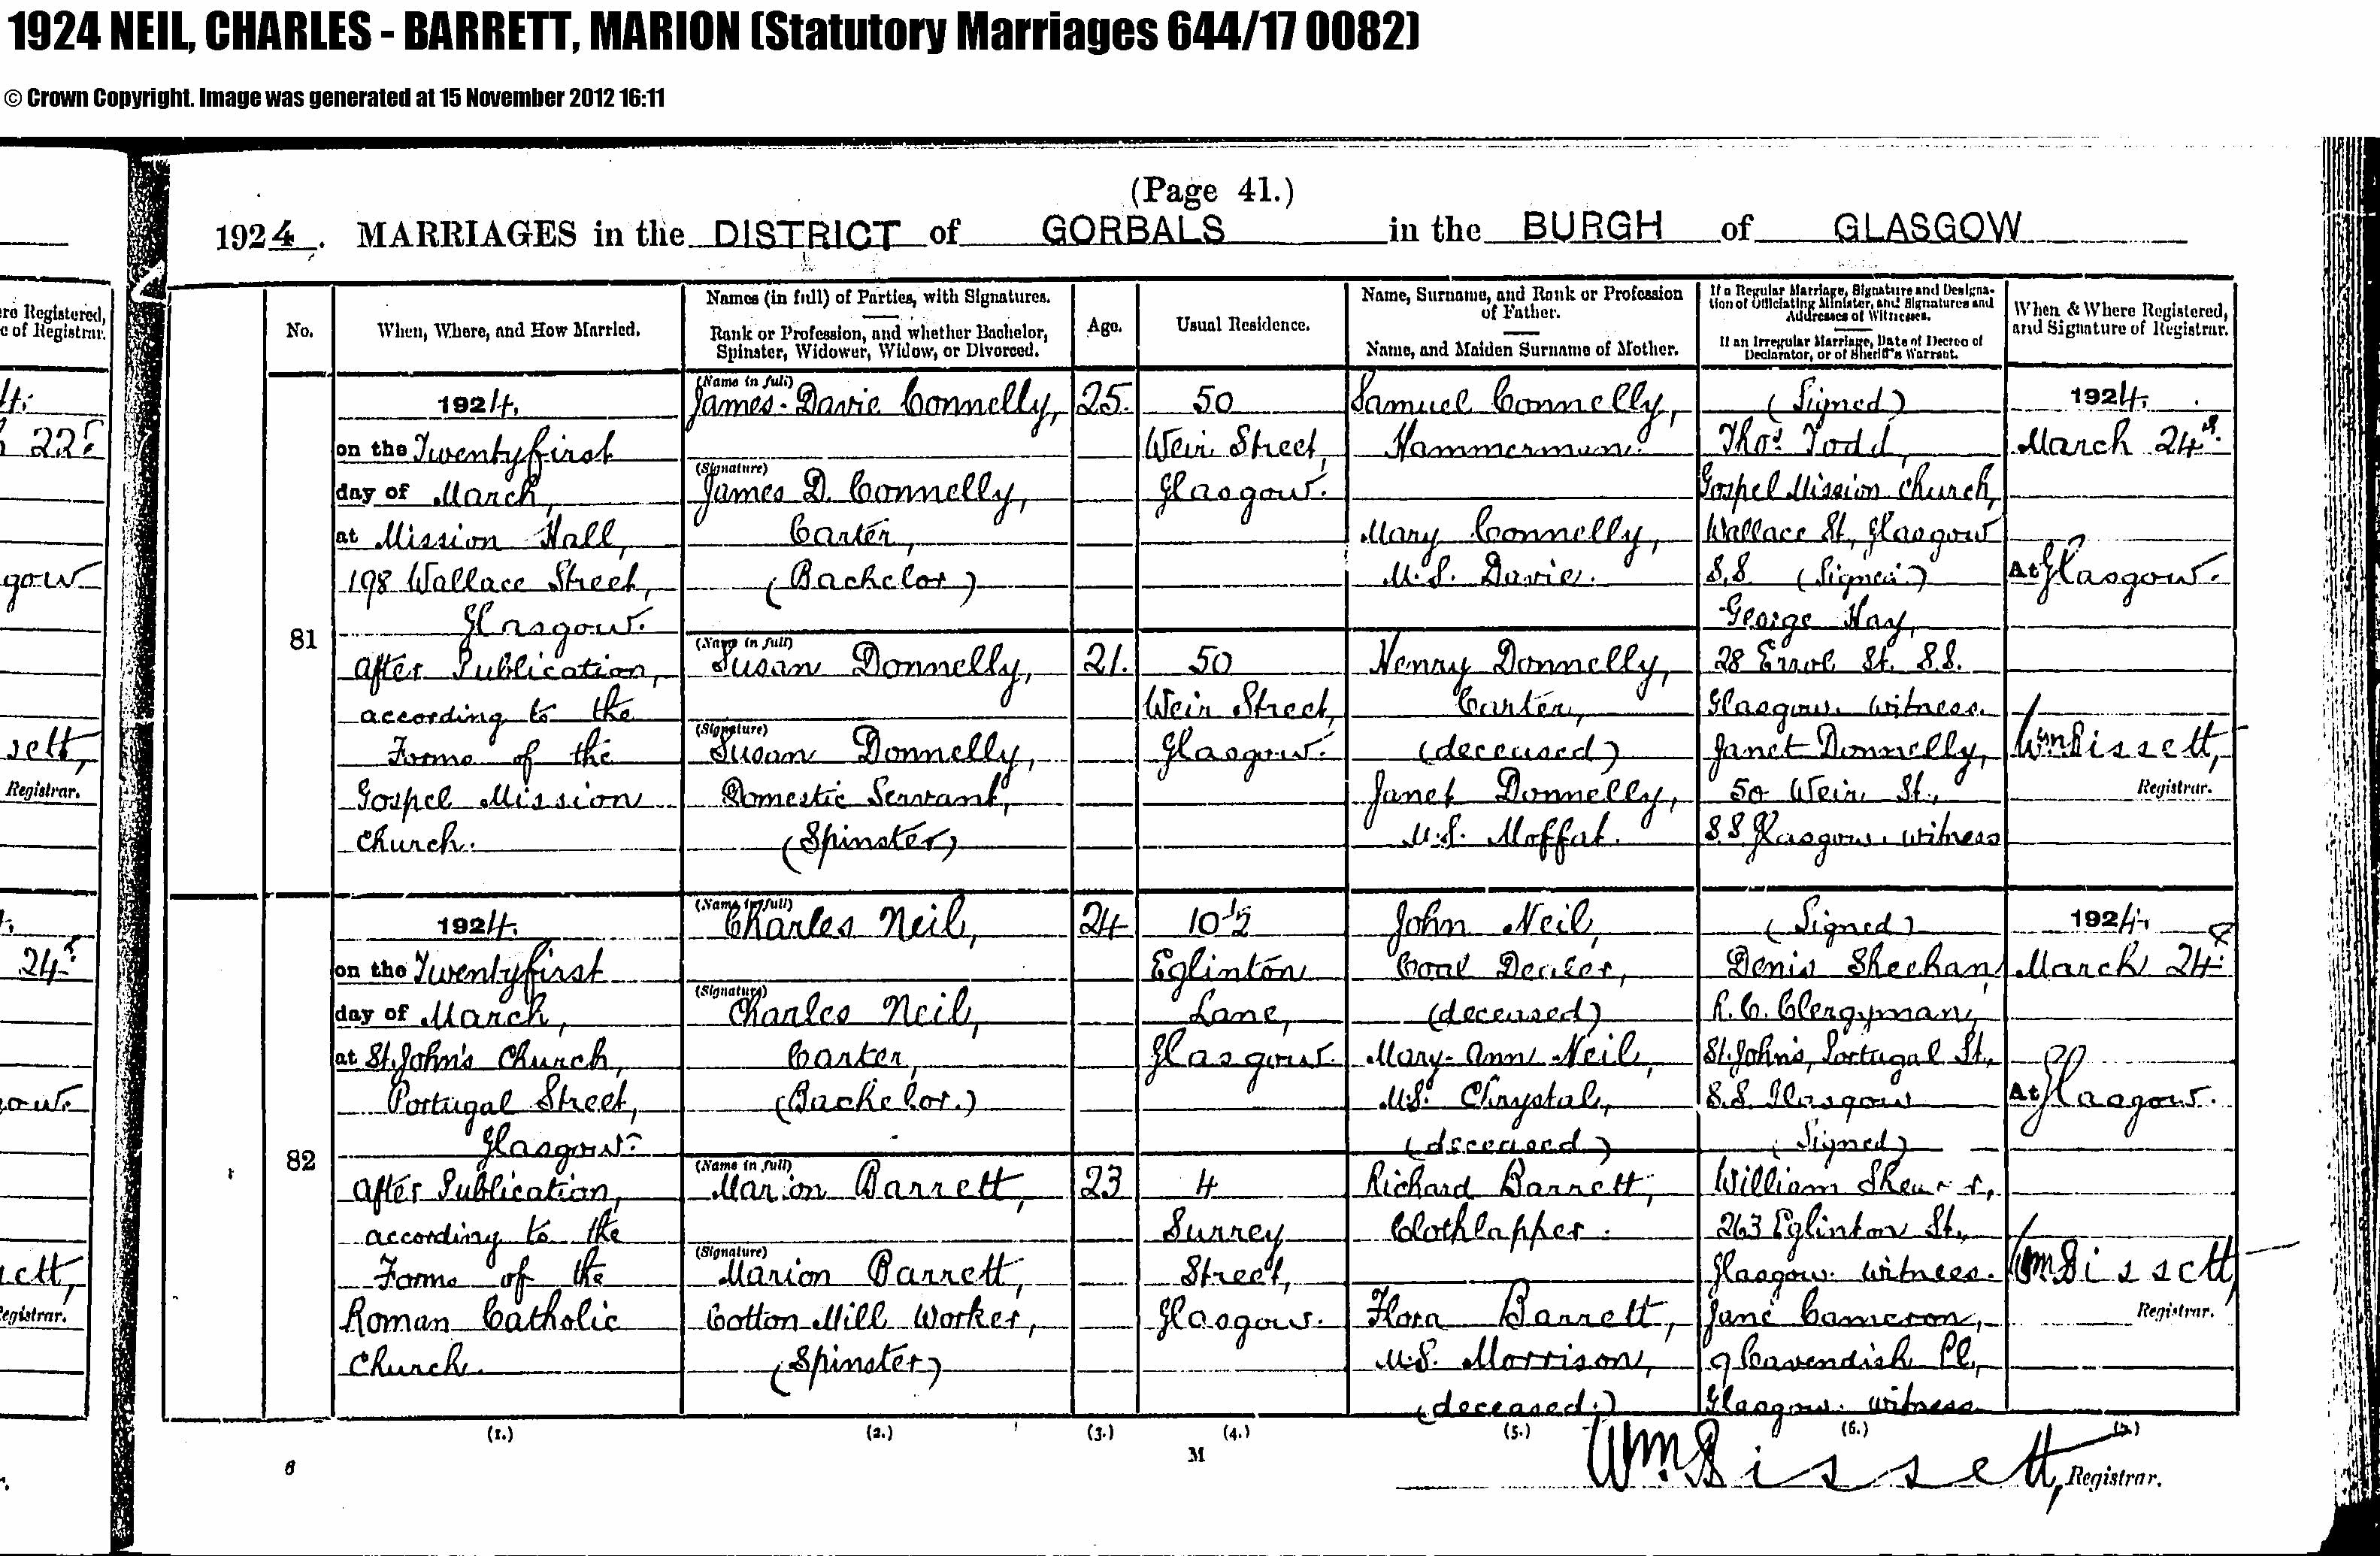 1924 NEIL, CHARLES - BARRETT, MARION (Statutory Marriages 644/17 0082)
© Crown Copyright. Image was generated at 15 November 2012 16:11
(Page 41.)
1924. MARRIAGES in the DISTRICT of GORBALS in the BURGH of GLASGOW
No.
When, Where, and How Married.
Names (in full) of Parties, with Signatures.
Rank or Profession, and whether Bachelor,
Spinster, Widower, Widow, or Divorced.
Age.
Usual Residence.
Name, Surname, and Rank or Profession
of Father.
Name, and Maiden Surname of Mother.
If a Regular Marriage, Signature and Designa-
tion of Officiating Minister, and Signatures and
Addresses of Witnesses.
If an Irregular Marriage, Date of Decree of
Declarator, or of Sheriff's Warrant.
When & Where Registered,
and Signature of Registrar.
81
1924.
on the Twentyfirst
day of March,
at Mission Hall,
198 Wallace Street,
Glasgow.
After Publication,
according to the
Forms of the
Gospel Mission
Church.
(Name in full)
James-Davie Connelly,
(Signature)
James D. Connelly,
Carter,
(Bachelor)
25.
50
Weir Street,
Glasgow.
Samuel Connelly,
Hammerman.
Mary Connelly,
M.S. Davie.
(Name in full)
Susan Donnelly,
(Signature)
Susan Donnelly,
Domestic Servant,
(Spinster)
21.
50
Weir Street,
Glasgow.
Henry Donnelly,
Carter,
(deceased)
Janet Donnelly,
M.S. Moffat.
(Signed)
Thos. Todd,
Gospel Mission Church,
Wallace St., Glasgow
S.S. (Signed.)
George Hay,
28 Errol St. S.S.
Glasgow. witness.
Janet Donnelly,
50 Weir St.,
S.S. Glasgow. witness
1924.
March 24th.
At Glasgow.
Wm Bissett,
Registrar.
82
1924.
on the Twentyfirst
day of March,
at St. John's Church,
Portugal Street,
Glasgow.
After Publication,
according to the
Forms of the
Roman Catholic
Church.
(Name in full)
Charles Neil,
(Signature)
Charles Neil,
Carter,
(Bachelor.)
24
10 1/2
Eglinton
Lane,
Glasgow.
John Neil,
Coal Dealer,
(deceased)
Mary-Ann Neil,
M.S. Chrystal,
(deceased)
(Name in full)
Marion Barrett,
(Signature)
Marion Barrett,
Cotton Mill Worker,
(Spinster)
23
4
Surrey
Street,
Glasgow.
Richard Barrett,
Clothlapper.
Flora Barrett,
M.S. Morrison,
(deceased.)
(Signed)
Denis Sheehan,
R.C. Clergyman,
St. John's, Portugal St.,
S.S. Glasgow
(Signed)
William
263 Eglinton St.,
Glasgow. witness.
Jane Cameron,
9 Cavendish Pl.,
Glasgow. witness
1924.
March 24th
At Glasgow.
Wm Bissett,
Registrar.
(1.) (2.) (3.) (4.) (5.) (6.) (7.)
6 M
Wm Bissett, Registrar.